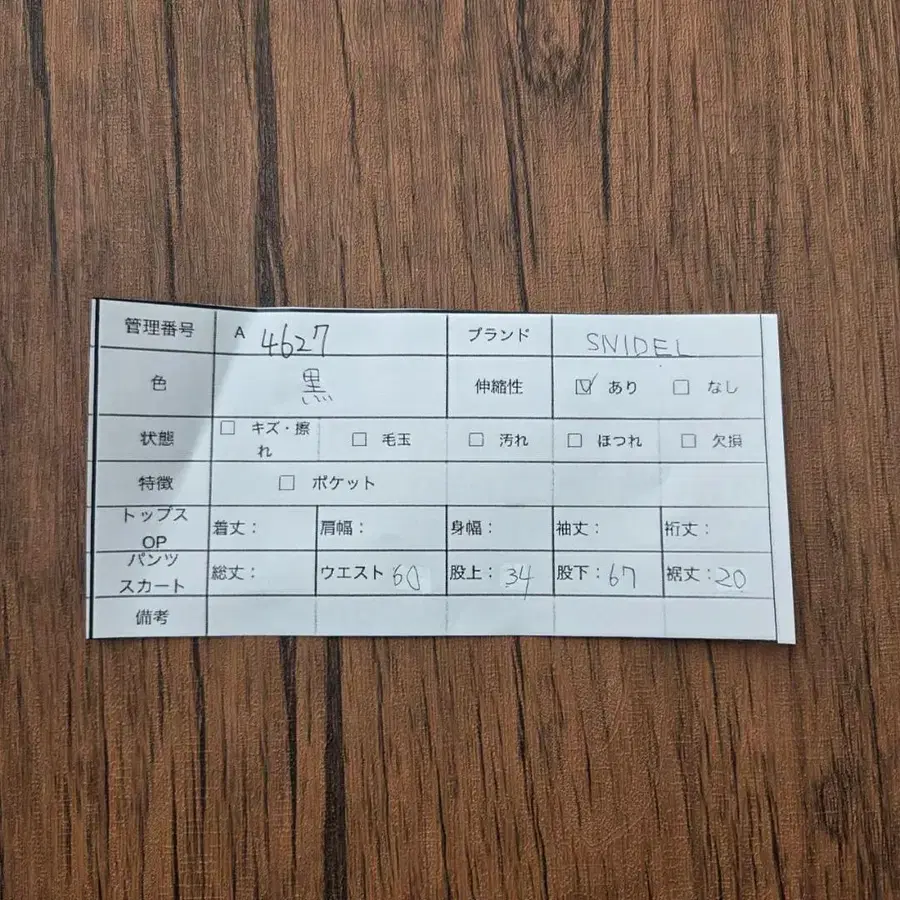 管理番号 A 4627 ブランド SNIDEL
色 黒 伸縮性 ☑ あり ☐ なし
状態 ☐ キズ・擦れ ☐ 毛玉 ☐ 汚れ ☐ ほつれ ☐ 欠損
特徴 ☐ ポケット
トップス OP 着丈: 肩幅: 身幅: 袖丈: 裄丈:
パンツ スカート 総丈: ウエスト 60 股上: 34 股下: 67 裾丈: 20
備考